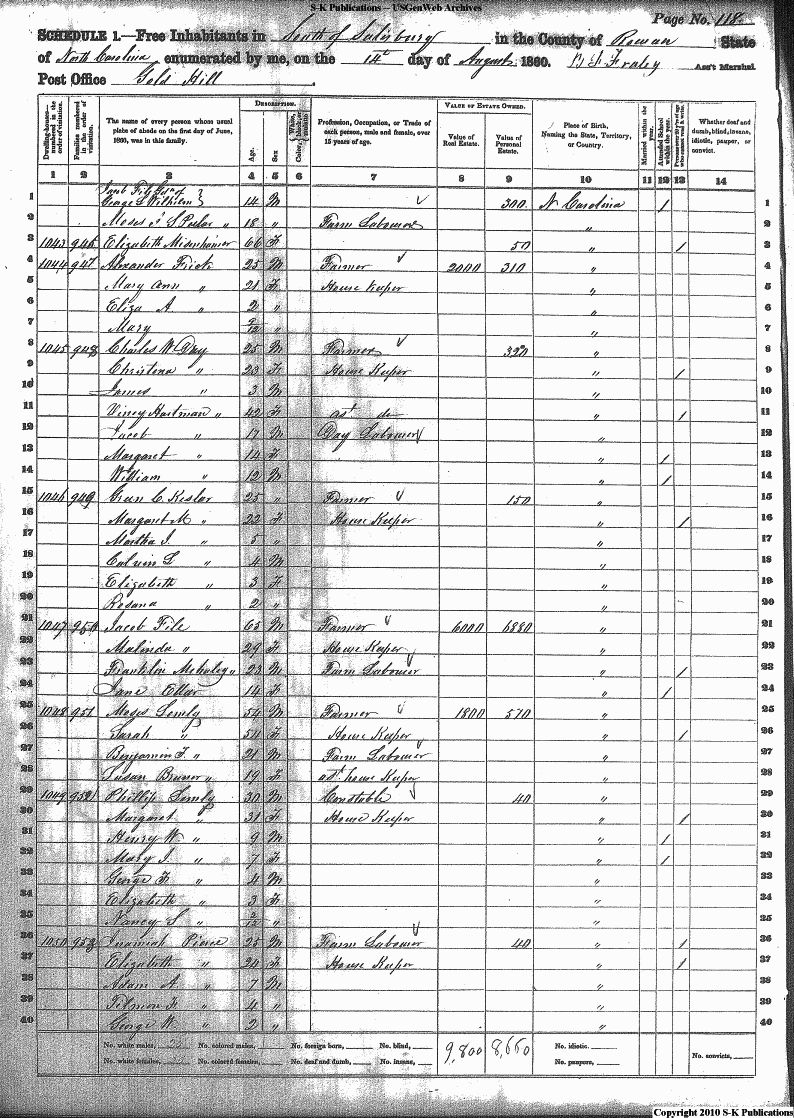 S-K Publications – USGenWeb Archives
Page No. 118
SCHEDULE 1.—Free Inhabitants in South of Salisbury in the County of Rowan State
of North Carolina enumerated by me, on the 14th day of August 1860. Fraley Ass't Marshal.
Post Office Gold Hill
Dwelling-houses—numbered in the order of visitation. Families numbered in the order of visitation. The name of every person whose usual place of abode on the first day of June, 1860, was in this family. DESCRIPTION. Age. Sex. Color, Profession, Occupation, or Trade of each person, male and female, over 15 years of age. VALUE OF ESTATE OWNED. Value of Real Estate. Value of Personal Estate. Place of Birth, Naming the State, Territory, or Country. Married within the year. Attended School within the year. Whether deaf and dumb, blind, insane, idiotic, pauper, or convict.
1 2 3 4 5 6 7 8 9 10 11 12 13 14
1 George Wilhelm 14 M 300 N Carolina / 1
2 Moses 18 " Farm Labourer " 2
3 1043 946 Elizabeth Misenhimer 66 F 50 " / 3
4 1044 947 Alexander Frick 25 M Farmer 2000 310 " 4
5 Mary Ann " 21 F House Keeper " 5
6 Eliza A " 2 " " 6
7 Mary 9/12 " " 7
8 1045 948 Charles W. Day 25 M Farmer " 8
9 Christena " 23 F House Keeper " / 9
10 James " 3 M " 10
11 Viney Hartman " 42 F ast do " / 11
12 Jacob " 17 M Day Labourer " 12
13 Margaret " 14 F " / 13
14 William " 12 M " / 14
15 1046 949 Green C. Keslar 25 " Farmer 150 " 15
16 Margaret M " 22 F House Keeper " / 16
17 Martha J. " 5 " " 17
18 Calvin L " 4 M " 18
19 Elizabeth " 3 F " 19
20 Rosana " 2 " " 20
21 1047 950 Jacob File 65 M Farmer 6000 6880 " 21
22 Malinda " 29 F House Keeper " 22
23 Franklin " 23 M Farm Labourer " / 23
24 Jane Eller 14 F " / 24
25 1048 951 Moses Lemly 54 M Farmer 1800 570 " 25
26 Sarah " 54 F House Keeper " / 26
27 Benjamin F. " 21 M Farm Labourer " 27
28 Susan Bruner " 19 F ast house Keeper " 28
29 1049 952 Phillip Lemly 30 M Constable 40 " 29
30 Margaret " 31 F House Keeper " / 30
31 Henry W. " 9 M " / 31
32 Mary J. " 7 F " / 32
33 George F " 4 M " 33
34 Elizabeth " 3 F " 34
35 Nancy S " 2/12 " " 35
36 1050 953 Jeremiah Pierce 25 M Farm Labourer 40 " / 36
37 Elizabeth " 24 F House Keeper " / 37
38 Adam A " 7 M " 38
39 Tilmon F " 4 " " 39
40 George W. " 2 " " 40
No. white males, No. colored males, No. foreign born, No. blind, 9,800 8,660 No. idiotic,
No. white females, No. colored females, No. deaf and dumb, No. insane, No. paupers, No. convicts,
Copyright 2010 S-K Publications